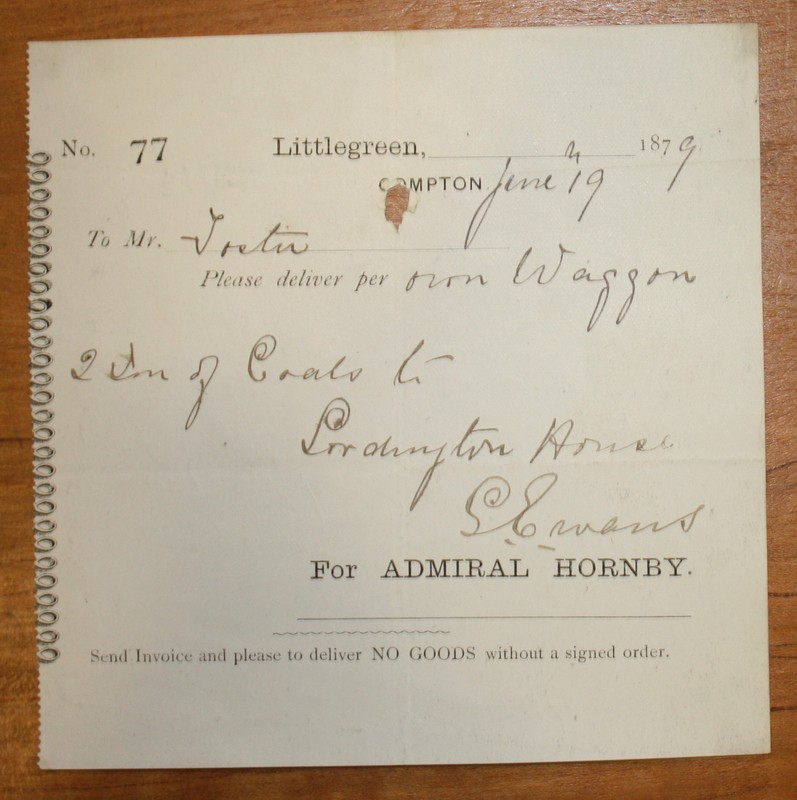 No. 77 Littlegreen, 1879
COMPTON June 19
To Mr. Foster
Please deliver per own Waggon
2 Ton of Coals to
Lordington House
G. Evans
For ADMIRAL HORNBY.
Send Invoice and please to deliver NO GOODS without a signed order.